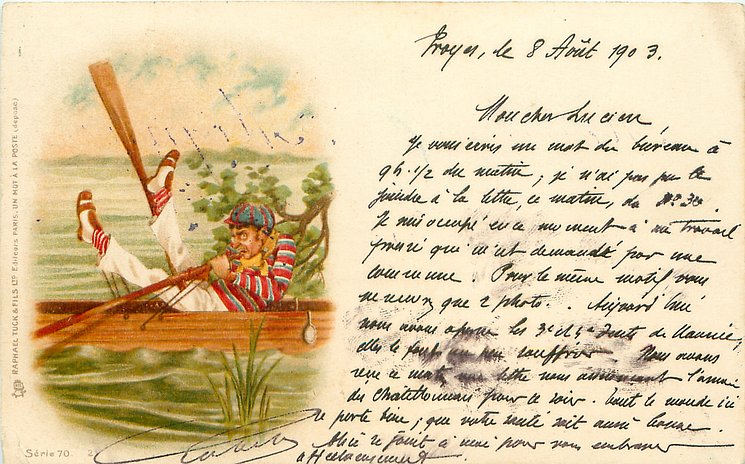 Troyes, le 8 Août 1903.
Mon cher Lucien
Je vous écris un mot du bureau à
9h 1/2 du matin ; je n'ai pas pu le
joindre à la lettre, ce matin, de
Je suis occupé en ce moment à un travail
pressé qui m'est demandé par une
commune. Pour le même motif vous
ne que 2 photo.. Aujourd'hui
nous avons les 3e et 4e de Maurice,
elles le font un peu souffrir. Nous avons
reçu ce matin une lettre nous annonçant l'arrivée
des Chatillonnais pour ce soir. Tout le monde ici
se porte bien ; que votre santé soit aussi bonne.
Alice se joint à moi pour vous embrasser
affectueusement.
RAPHAEL TUCK & FILS LTD Editeurs PARIS; UN MOT A LA POSTE (déposé)
Série 70